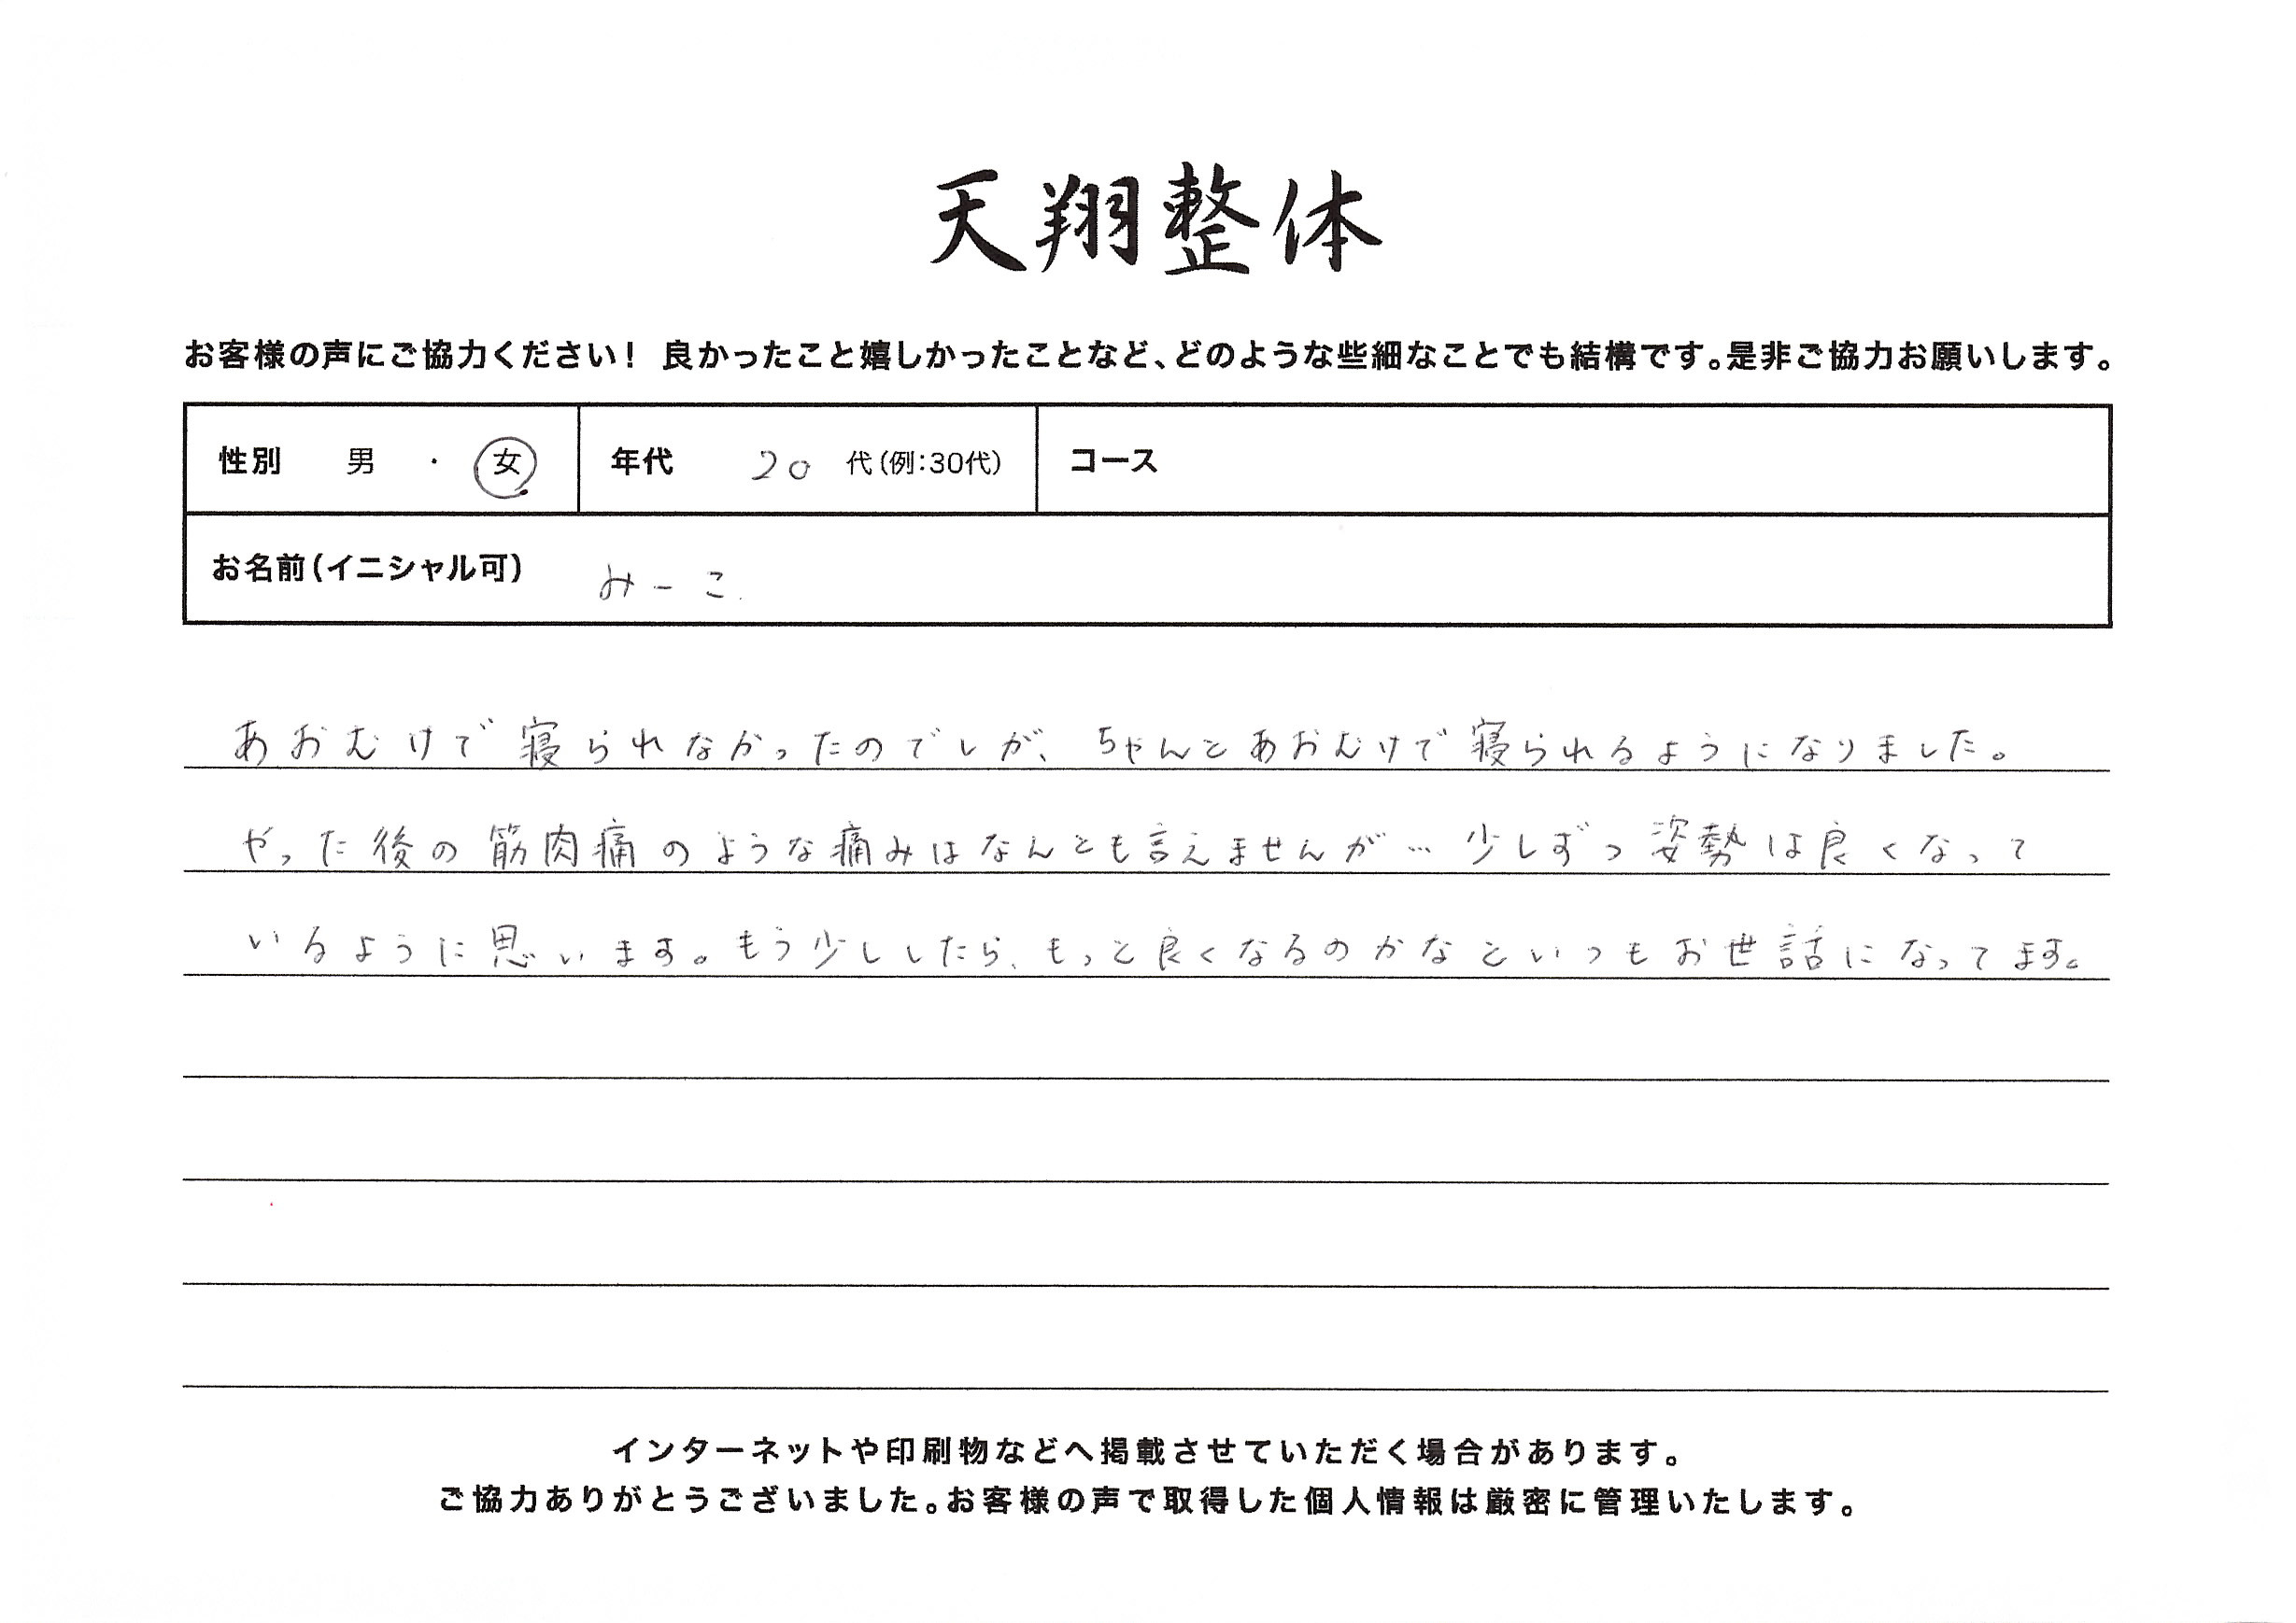 天翔整体
お客様の声にご協力ください! 良かったこと嬉しかったことなど、どのような些細なことでも結構です。是非ご協力お願いします。
性別 男 ・ 女 年代 20 代(例:30代) コース
お名前(イニシャル可) みーこ
あおむけで寝られなかったのでしが、ちゃんとあおむけで寝られるようになりました。
やった後の筋肉痛のような痛みはなんとも言えませんが… 少しずつ姿勢は良くなって
いるように思います。もう少ししたら、もっと良くなるのかなといつもお世話になってます。
インターネットや印刷物などへ掲載させていただく場合があります。
ご協力ありがとうございました。お客様の声で取得した個人情報は厳密に管理いたします。